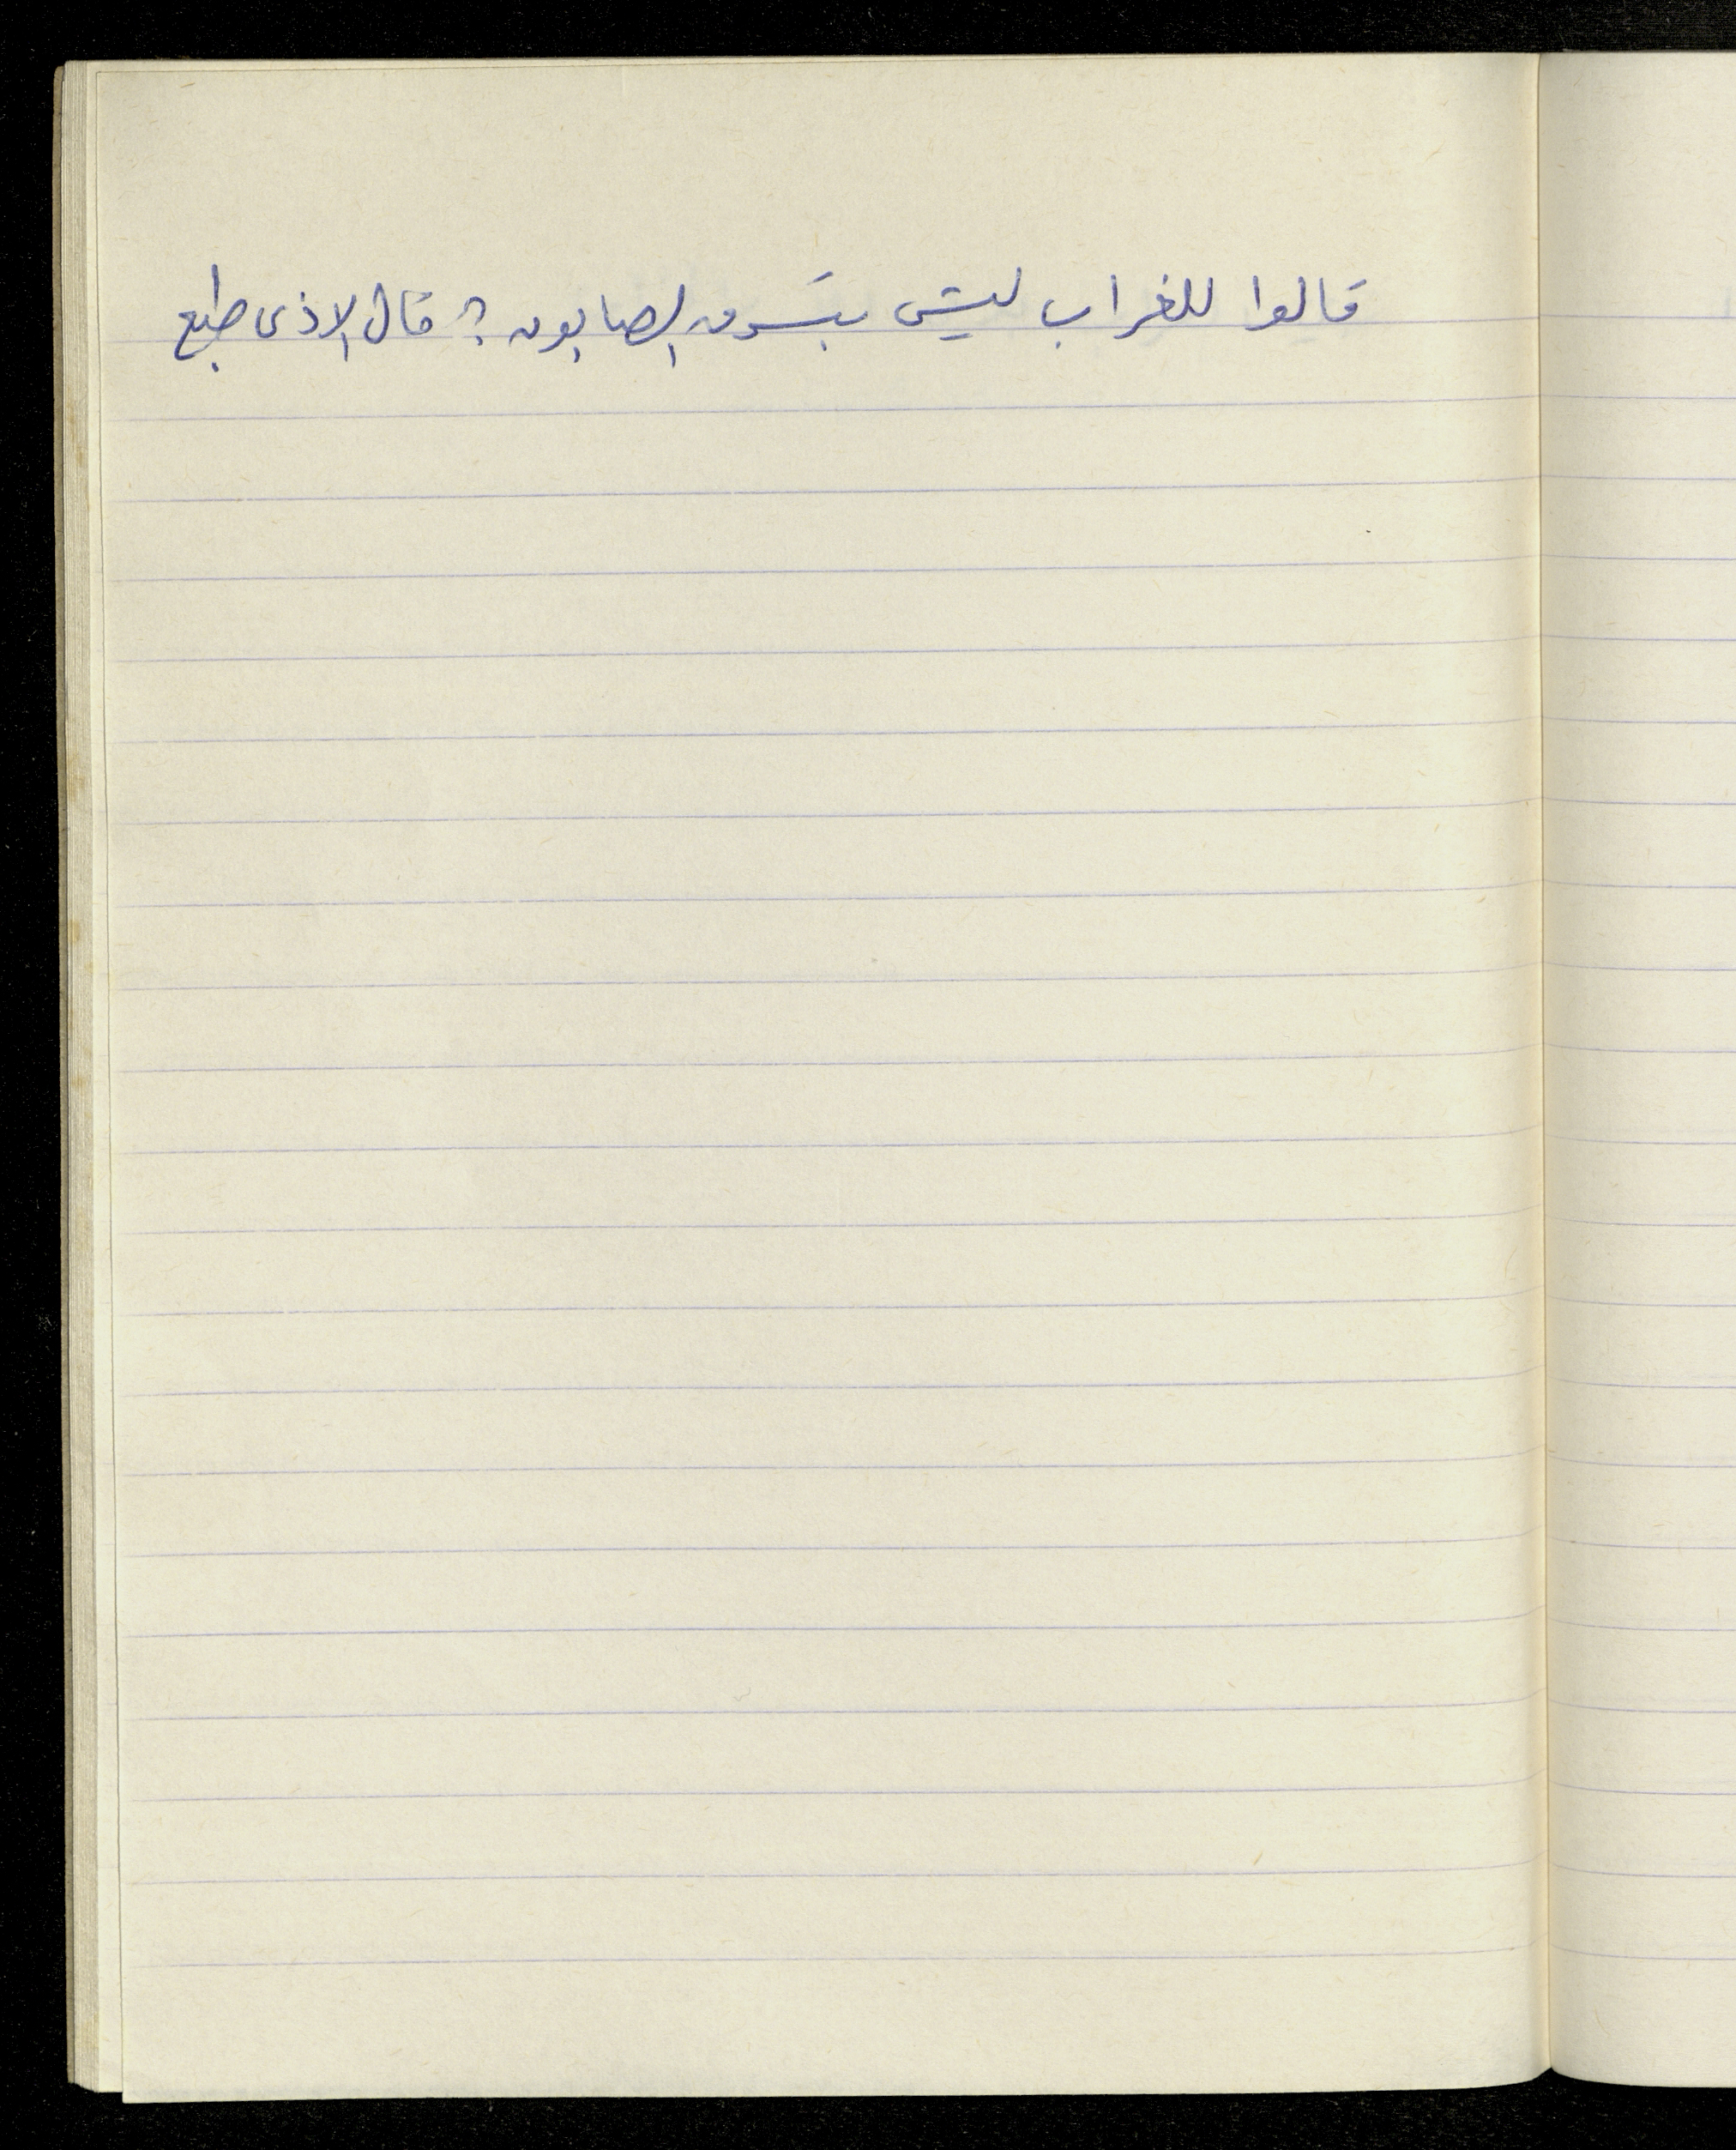 قالوا للغراب ليش بتسرق الصابون؟ قال الاذى طبع